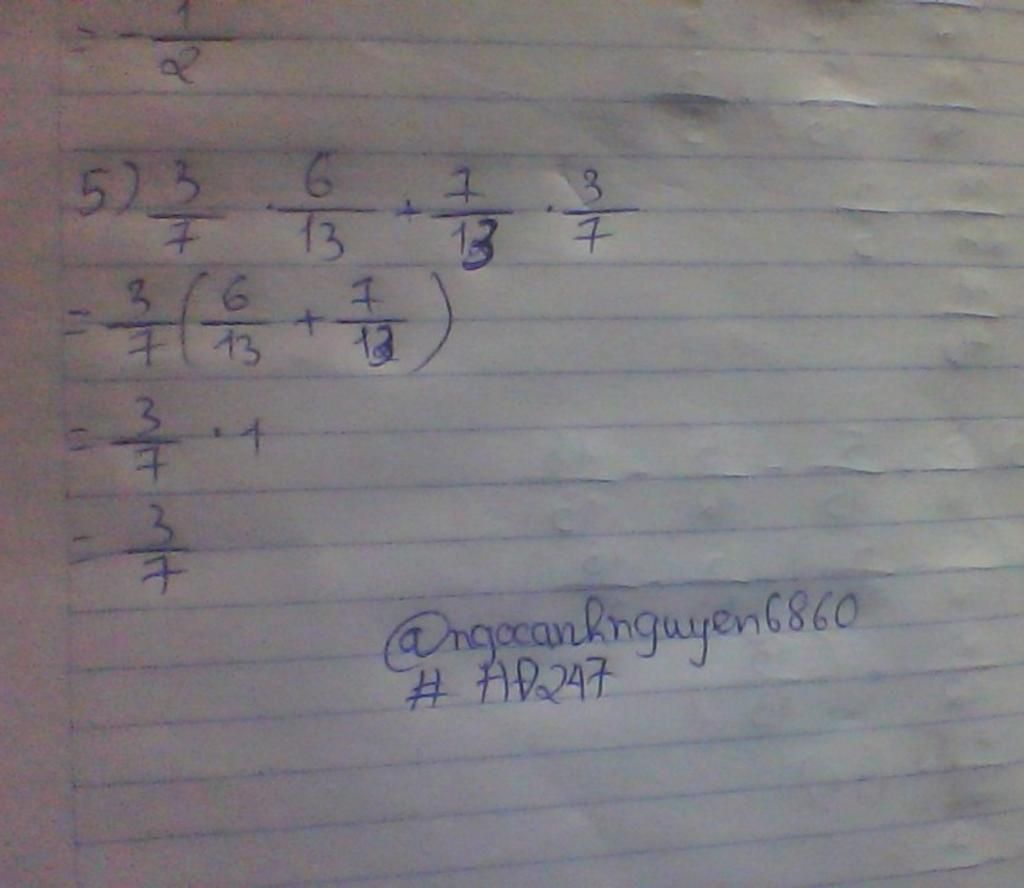 = - 1/2
5) 3/7 · 6/13 + 7/13 · 3/7
= 3/7 ( 6/13 + 7/13 )
= 3/7 · 1
= 3/7
@ngocanhnguyen6860
# HD247